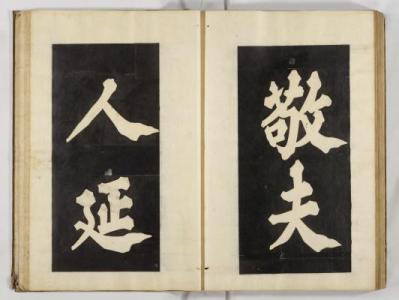 敬夫
人延